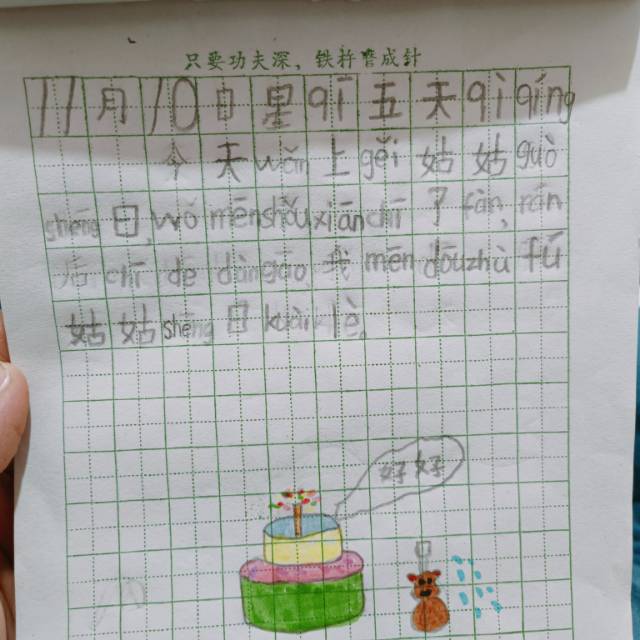 只要功夫深，铁杵磨成针
11月10日星qī五天qìqíng
今天wǎn上gěi姑姑guò
shēng日，wǒmēnshǒuxiānchī了fàn，rán
后chīdedàngāo，我mēndōuzhùfú
姑姑shēng日kuàilè。
好好